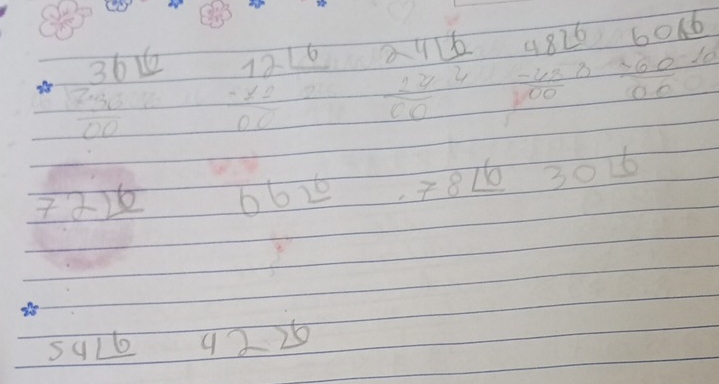 36 6 12 6 24 6 48 6 60 6
-36 -12 2 24 4 -48 8 -60 10
00 00 00 00 00
72 6 66 6 78 6 30 6
54 6 42 6